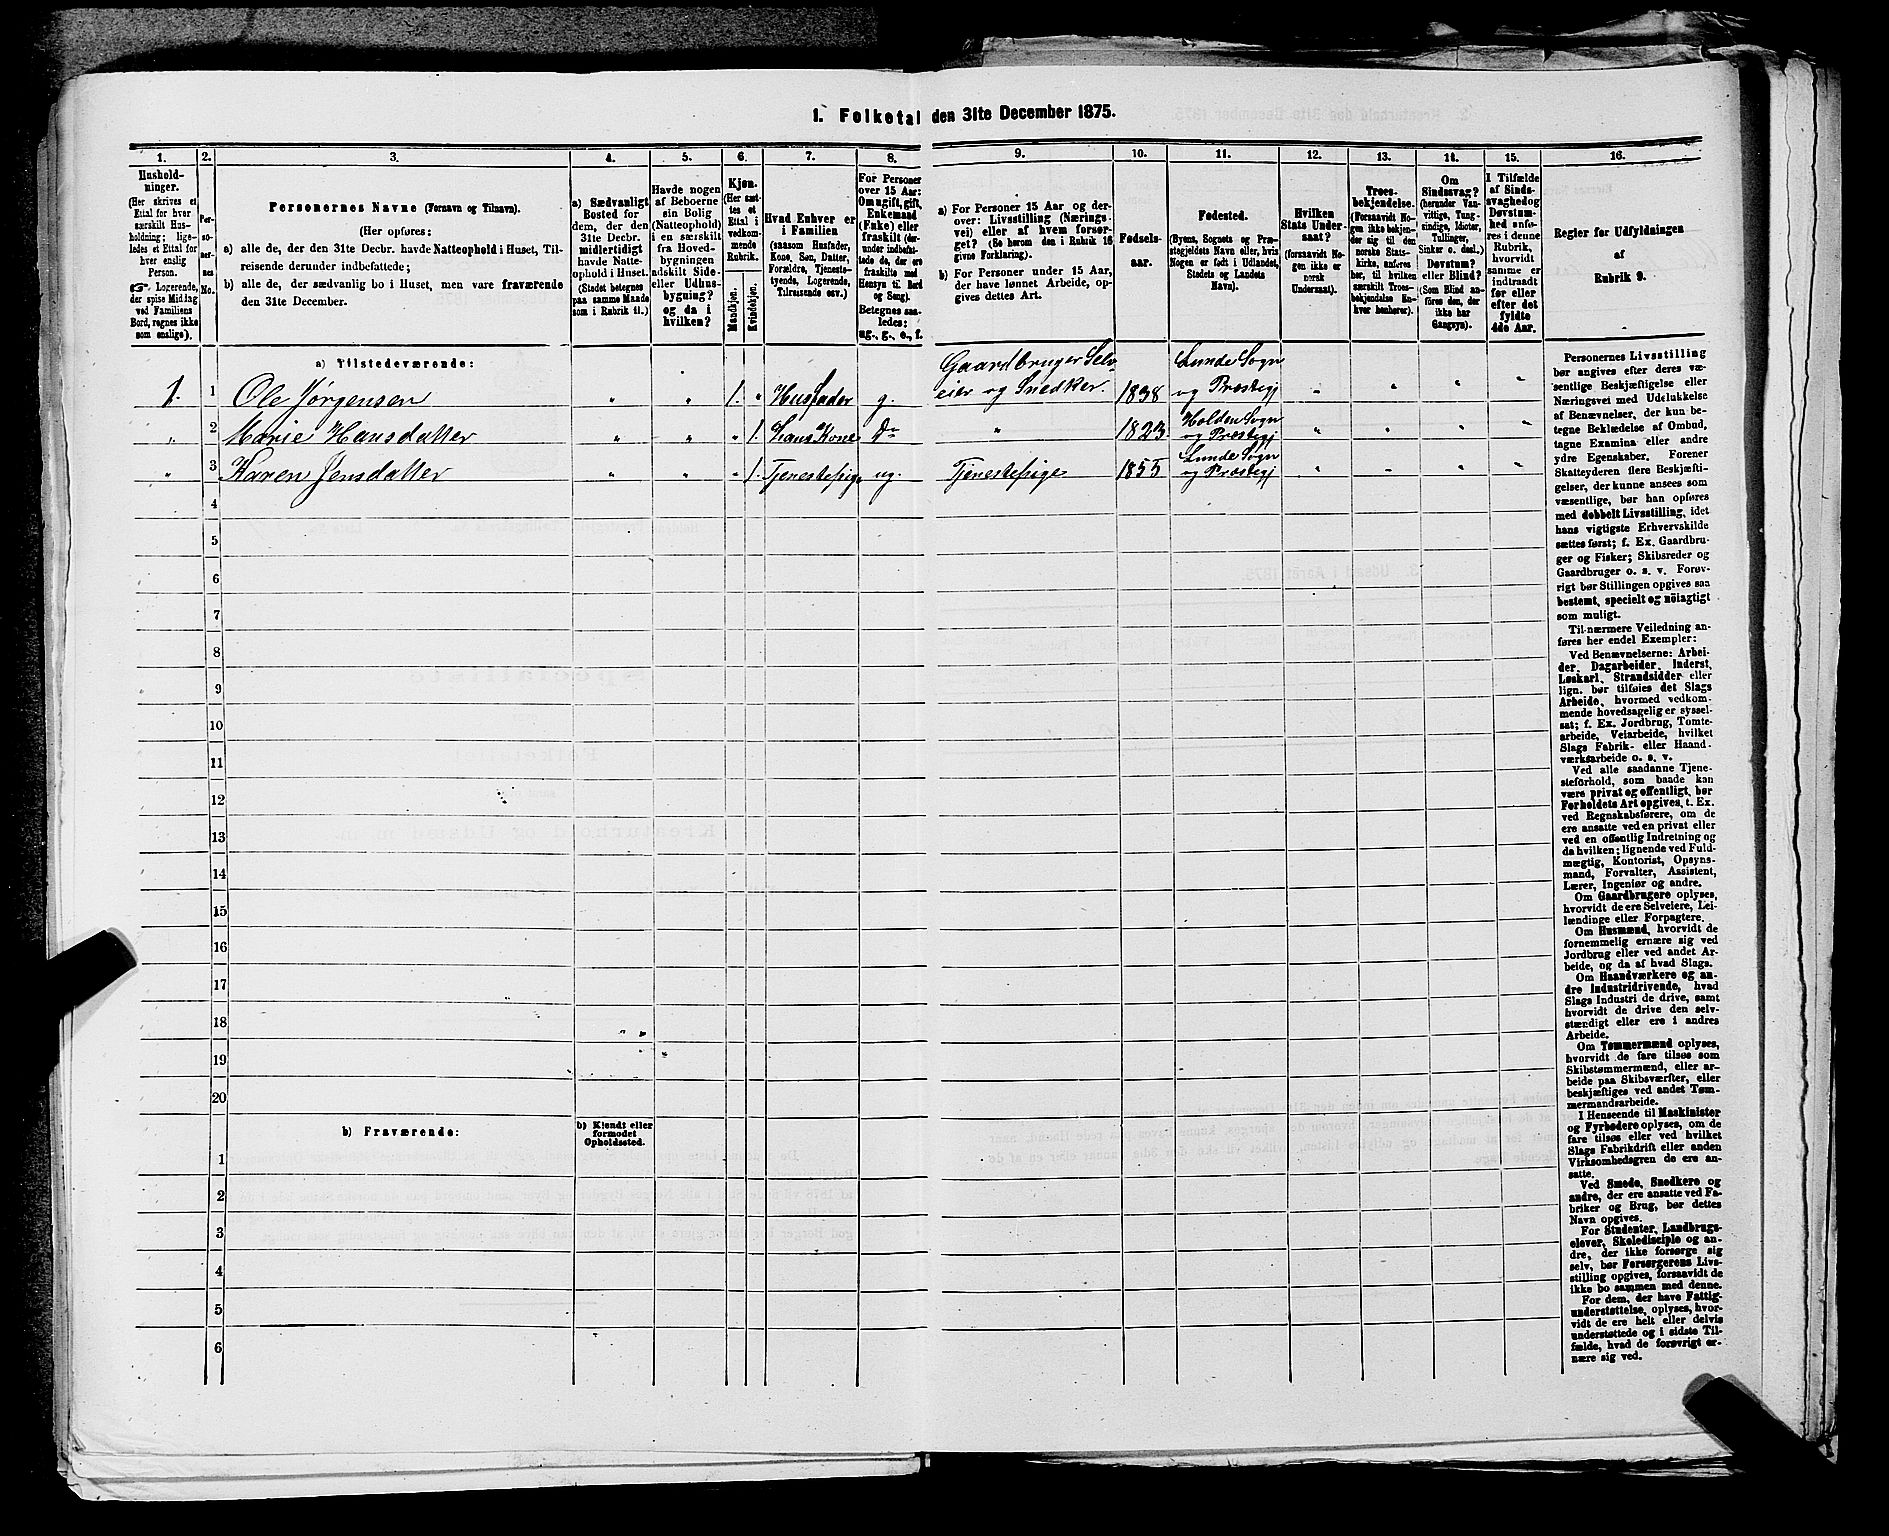 1. Folketal den 31te December 1875.
1.
2.
3.
4.
5.
6.
7.
8.
9.
10.
11.
12.
13.
14.
15.
16.
Hushold-
ninger.
(Her skrives et
Ettal for hver
særskilt Hus-
holdning; lige-
ledes et Ettal for
hver enslig
Person.
☞ Logerende,
der spise Middag
ved Familiens
Bord, regnes ikke
som enslige).
Per-
so-
ner-
nes
No.
Personernes Navne (Fornavn og Tilnavn).
(Her opføres:
a) alle de, der den 31te Decbr. havde Natteophold i Huset, Til-
reisende derunder indbefattede;
b) alle de, der sædvanlig bo i Huset, men vare fraværende
den 31te December.
a) Sædvanligt
Bosted for
dem, der den
31te Decbr.
midlertidigt
havde Natte-
ophold i Huset.
(Stedet betegnes
paa samme Maade
som i Rubrik 11.)
Havde nogen
af Beboerne
sin Bolig
(Natteophold)
i en særskilt
fra Hoved-
bygningen
adskilt Side-
eller Udhus-
bygning?
og da i
hvilken?
Kjøn.
(Her sæt-
tes et
Ettal i
vedkom-
mende
Rubrik.
Mandkjøn.
Kvindekjøn.
Hvad Enhver er
i Familien
(saasom Husfader,
Kone, Søn, Datter,
Forældre, Tjeneste-
tyende, Logerende,
Tilreisende osv.)
For Personer
over 15 Aar:
Om ugift, gift,
Enkemand
(Enke) eller
fraskilt (der-
under indbefat-
tede de, der ere
fraskilte med
Hensyn til Bord
og Seng).
Betegnes saa-
ledes:
ug., g., e., f.
a) For Personer 15 Aar og der-
over: Livsstilling (Nærings-
vei) eller af hvem forsør-
get? (Se herom den i Rubrik 16
givne Forklaring).
b) For Personer under 15 Aar,
der have lønnet Arbeide, op-
gives dettes Art.
Fødsels-
aar.
Fødested.
(Byens, Sognets og Præ-
stegjeldets Navn eller, hvis
Nogen er født i Udlandet,
Stedets og Landets
Navn).
Hvilken
Stats Under-
saat?
(forsaavidt No-
gen ikke er
norsk
Undersaat).
Troes-
bekjendelse.
(Forsaavidt No-
gen ikke bekjen-
der sig til den
norske Stats-
kirke, anføres
her, til hvilken
særskilt Troes-
bekjendelse En-
hver henhører).
Om
Sindssvag?
(herunder Van-
vittige, Tung-
sindige, Idioter,
Tullinger,
Sinker o. desl.)
Døvstum?
eller Blind?
(Som Blind an-
føres den, der
ikke har
Gangsyn).
I Tilfælde
af Sinds-
svaghed og
Døvstum-
hed anfø-
res i denne
Rubrik,
hvorvidt
samme er
indtraadt
før eller
efter det
fyldte
4de Aar.
Regler for Udfyldningen
af
Rubrik 9.
a) Tilstedeværende:
Gaardbruger Selv-
Lunde Sogn
1. 1 Ole Jørgensen " " 1. " Husfader g. eier og Snedker. 1838 og Præstegj " " " "
Holden Sogn
" 2 Marie Hansdatter " " " 1. hans Kone Do " 1823. og Præstegj " " " "
Lunde Sogn
" 3 Karen Jensdatter " " " 1. Tjenestepige ug. Tjenestepige 1855 og Præstegj " " " "
4
5
6
7
8
9
10
11
12
13
14
15
16
17
18
19
20
b) Fraværende:
b) Kjendt eller
formodet
Opholdssted.
1
2
3
4
5
6
Personernes Livsstilling
bør angives efter deres væ-
sentlige Beskjæftigelse eller
Næringsvei med Udelukkelse
af Benævnelser, der kun be-
tegne Beklædelse af Ombud,
tagne Examina eller andre
ydre Egenskaber. Forener
Skatteyderen flere Beskjæfti-
gelser, der kunne ansees som
væsentlige, bør han opføres
med dobbelt Livsstilling, idet
hans vigtigste Erhvervskilde
sættes først; f. Ex. Gaardbru-
ger og Fisker; Skibsreder og
Gaardbruger o. s. v. Forøv-
rigt bør Stillingen opgives saa
bestemt, specielt og nöiagtigt
som muligt.
Til nærmere Veiledning an-
føres her endel Exempler:
Ved Benævnelserne: Arbei-
der, Dagarbeider, Inderst,
Løskarl, Strandsidder eller
lign. bør tilføies det Slags
Arbeide, hvormed vedkom-
mende hovedsagelig er syssel-
sat; f. Ex. Jordbrug, Tomte-
arbeide, Veiarbeide, hvilket
Slags Fabrik- eller Haand-
værksarbeide o. s. v.
Ved alle saadanne Tjene-
steforhold, som baade kan
være privat og offentligt, bør
Forholdets Art opgives, t. Ex.
ved Regnskabsførere, om de
ere ansatte ved en privat eller
ved en offentlig Indretning og
da hvilken; lignende ved Fuld-
mægtig, Kontorist, Opsyns-
mand, Forvalter, Assistent,
Lærer, Ingeniør og andre.
Om Gaardbrugere oplyses,
hvorvidt de ere Selveiere, Lei-
lændinge eller Forpagtere.
Om Husmænd, hvorvidt de
fornemmelig ernære sig ved
Jordbrug eller ved andet Ar-
beide, og da af hvad Slags.
Om Haandværkere og an-
dre Industridrivende, hvad
Slags Industri de drive, samt
hvorvidt de drive den selv-
stændigt eller ere i andres
Arbeide.
Om Tømmermænd oplyses,
hvorvidt de fare tilsøs som
Skibstømmermænd, eller ar-
beide paa Skibsværfter, eller
beskjæftiges ved andet Tøm-
mermandsarbeide.
I Henseende til Maskinister
og Fyrbødere oplyses, om de
fare tilsøs eller ved hvilket
Slags Fabrikdrift eller anden
Virksomhedsgren de ere an-
satte.
Ved Smede, Snedkere og
andre, der ere ansatte ved Fa-
briker og Brug, bør dettes
Navn opgives.
For Studenter, Landbrugs-
elever, Skoledisciple og an-
dre, der ikke forsørge sig
selv, bør Forsørgerens Livs-
stilling opgives, forsaavidt de
ikke bo sammen med denne.
For dem, der have Fattig-
understøttelse, oplyses, hvor-
vidt de ere helt eller delvis
understøttede og i sidste Til-
fælde, hvad de forøvrigt er-
nære sig ved.